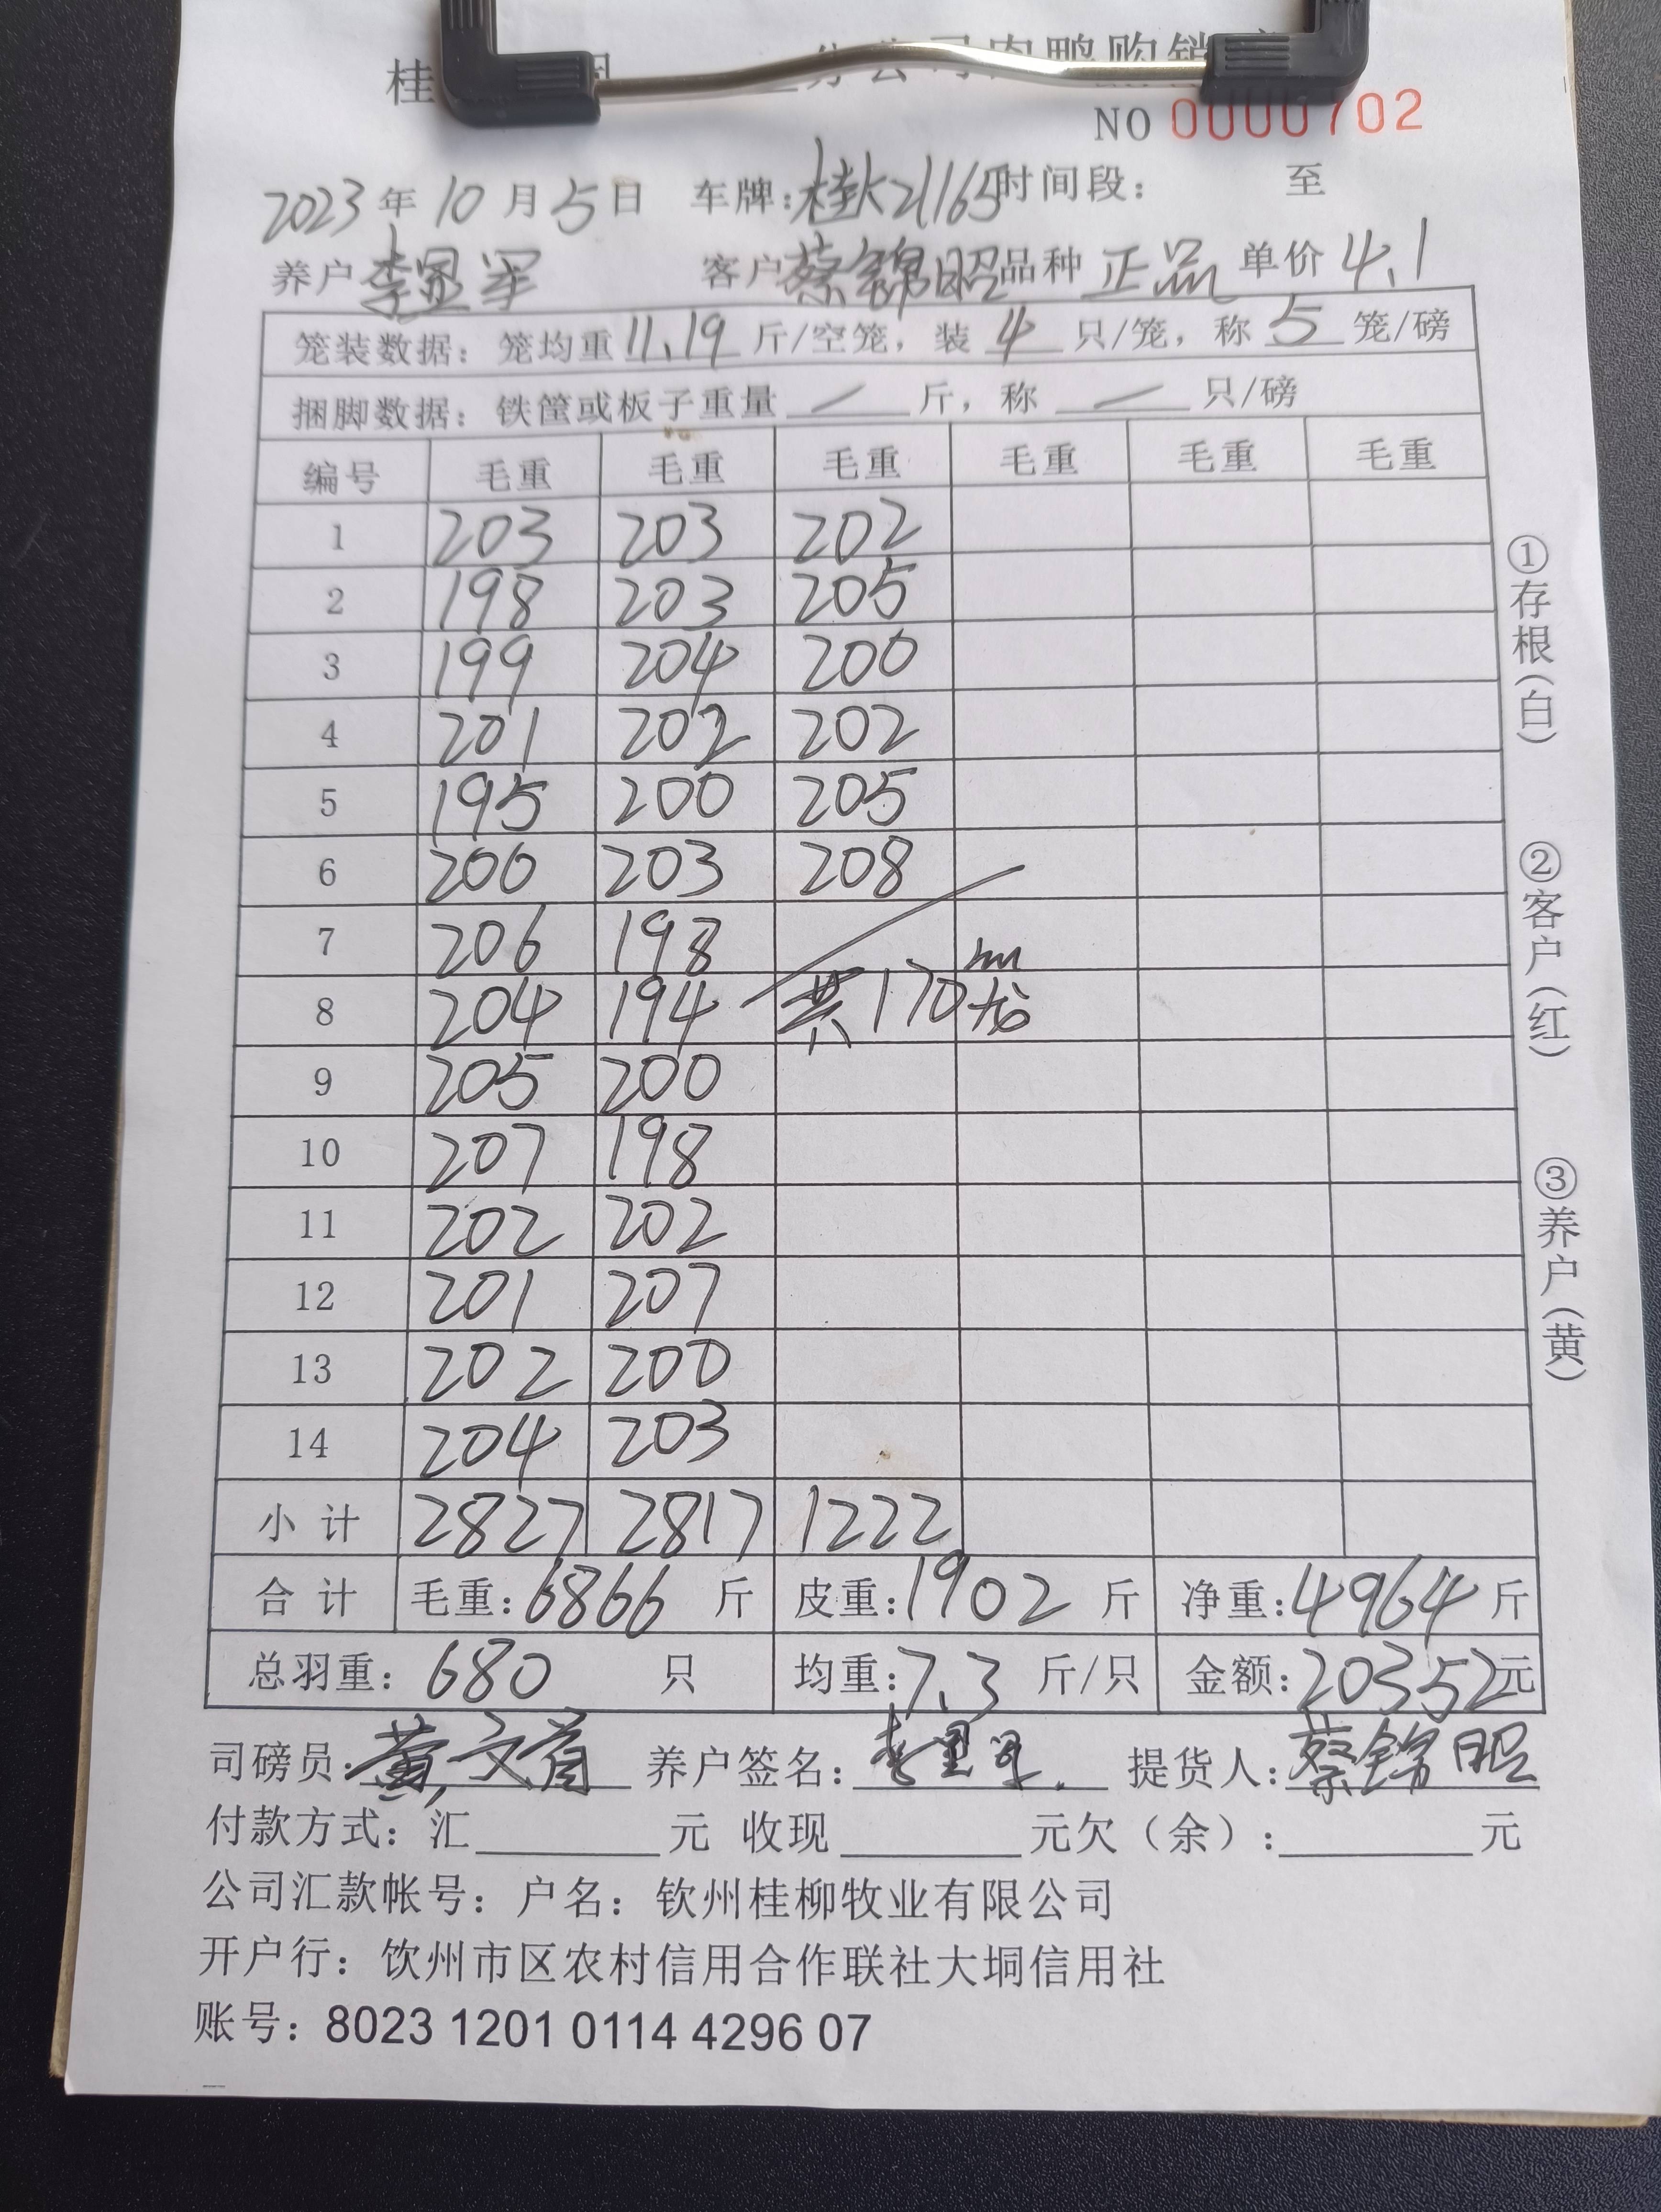 桂 分公司肉鸭购销
NO 0000702
2023年10月5日 车牌:桂K21165 时间段: 至
养户 李显军 客户 蔡锦昭 品种 正品 单价 4.1
笼装数据: 笼均重 11.19 斤/空笼, 装 4 只/笼, 称 5 笼/磅
捆脚数据: 铁筐或板子重量 / 斤, 称 / 只/磅
编号 毛重 毛重 毛重 毛重 毛重 毛重
1 203 203 202
2 198 203 205
3 199 204 200
4 201 202 202
5 195 200 205
6 200 203 208
7 206 198
8 204 194 共170笼
9 205 200
10 207 198
11 202 202
12 201 207
13 202 200
14 204 203
小计 2827 2817 1222
合计 毛重:6866 斤 皮重:1902 斤 净重:4964 斤
总羽重: 680 只 均重:7.3 斤/只 金额:20352元
司磅员: 黄文首 养户签名: 李显军 提货人: 蔡锦昭
付款方式: 汇 元 收现 元欠(余): 元
公司汇款帐号: 户名: 钦州桂柳牧业有限公司
开户行: 饮州市区农村信用合作联社大垌信用社
账号: 8023 1201 0114 4296 07
①存根(白)
②客户(红)
③养户(黄)